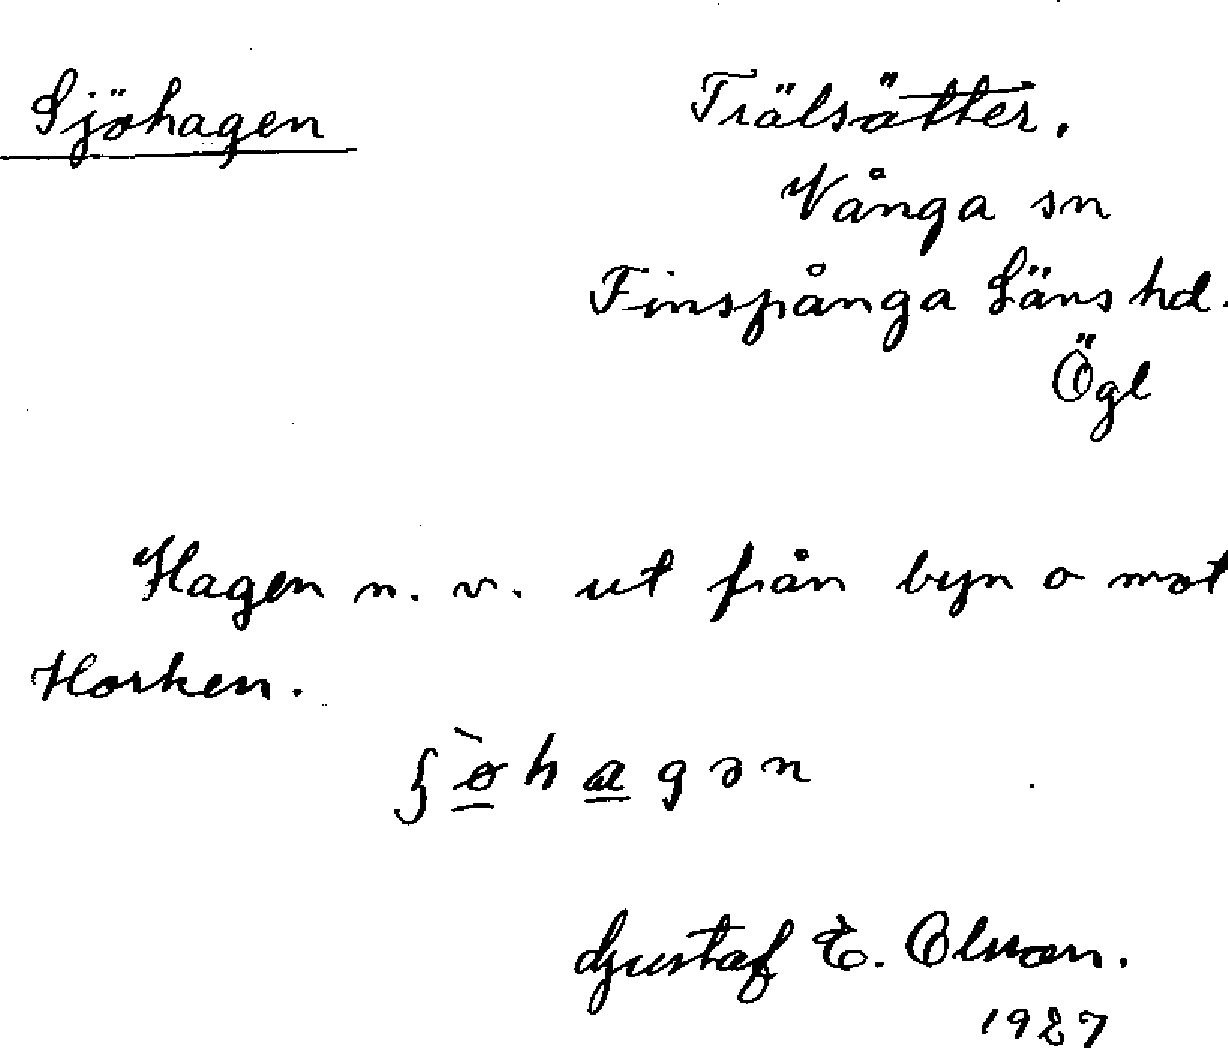 Sjöhagen
Trälsätter.
Vånga sn
Finspånga Läns hd.
Ögl
Hagen n. v. ut från byn o mot
Horken.
ʃö̀hagən
Gustaf E. Olsson.
1927